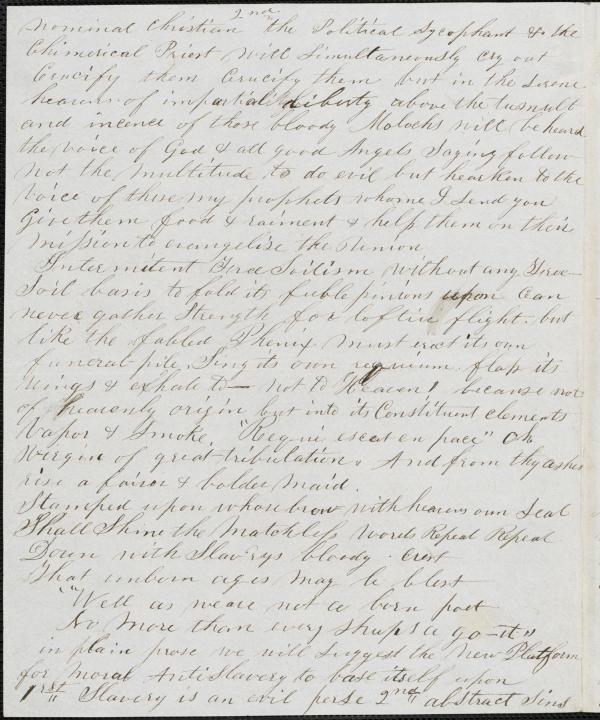 2nd
nominal Christian the Political Sycophant & the
Chimerical Priest will simultaneously cry out
Crucify them Crucify them but in the serene
heavens of impartial Liberty above the tumult
and incence of those bloody Molochs will be heard
the voice of God & all good Angels saying follow
not the multitude to do evil but hearken to the
voice of these my prophets whome I send you
Give them food & raiment & help them on their
mission to evangelise the Union
Intermitent Free Soilism without any Free-
Soil basis to fold its feeble pinions upon can
never gather Strength for loftier flight. but
like the fabled Phenix must erect its own
funeral pile, Sing its own requium flap its
Wings & exhale to — not to Heaven! because not
of heavenly origin but into its Constituent elements
Vapor & Smoke, "Requi escat en pace" Oh
Virgin of great tribulation. And from thy ashes
rise a fairer & bolder maid.
Stamped upon whose brow with heavens own Seal
Shall Shine the matchless words Repeal Repeal
Down with Slaverys bloody crest
That unborn ages may be blest
"Well as we are not a born poet
No more than every shup's a go-it"
in plain prose we will suggest the new Platform
for moral AntiSlavery to base itself upon
1rst" Slavery is an evil perse 2nd" abstract Sins